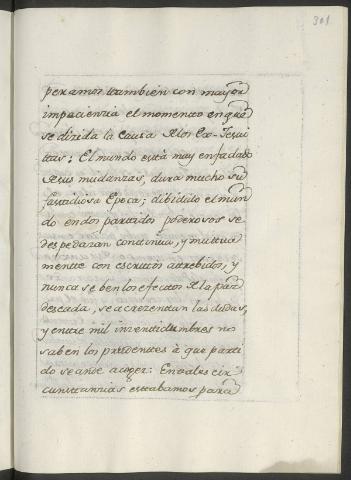 301
peramos tambien con mayor
impaciencia el momento en que
se dizida la Causa de los Ex-Jesui
tas; El mundo està muy enfadado
de sus mudanzas, dura mucho su
fastidiosa Epoca; dibidido el mun
do en dos partidos poderosos se
despedazan continua, y mutua
mente con escritos atrebidos, y
nunca se ben los efectos de la paz
deseada, se acrezentan las dudas,
y entre mil inzertidumbres no
saben los prudentes à que parti
do se ande acojer: En tales cir
cunstanzias estabamos para